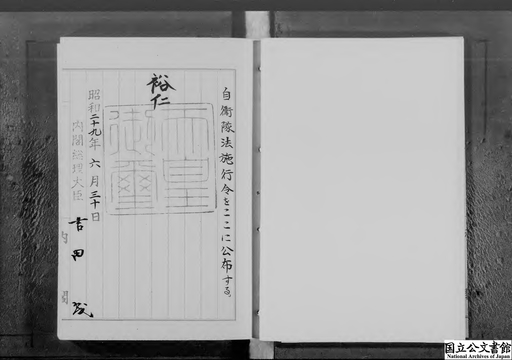 自衛隊法施行令をここに公布する。
裕仁
天皇御璽
昭和二十九年六月三十日
内閣総理大臣
吉田茂
国立公文書館
National Archives of Japan